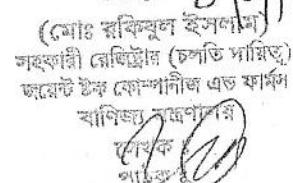 (মোঃ রকিবুল ইসলাম)
সহকারী রেজিস্ট্রার (চলতি দায়িত্ব)
জয়েন্ট ষ্টক কোম্পানীজ এন্ড ফার্মস
বাণিজ্য মন্ত্রণালয়
লেখক :
পাঠক :